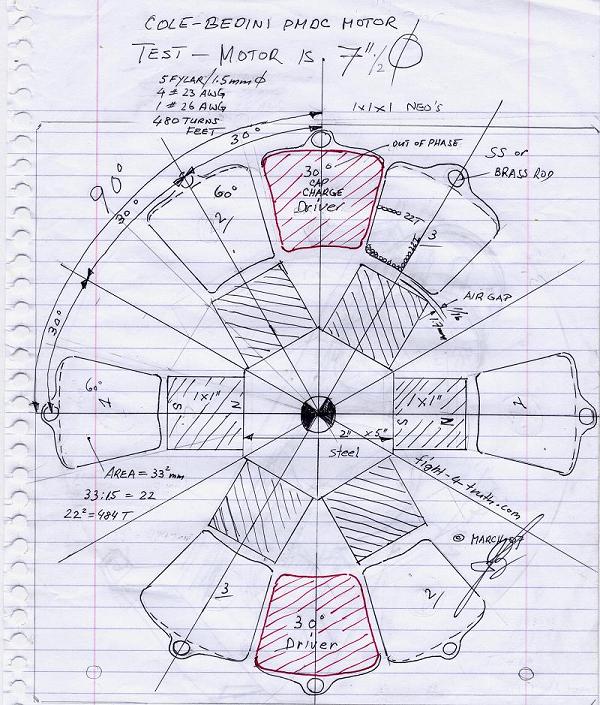 COLE-BEDINI PMDC MOTOR
TEST-MOTOR IS 7"1/2 Ø
5 FYLAR/1.5mm Ø
4 # 23 AWG
1 # 26 AWG
480 TURNS
FEET
1x1x1 NEO'S
30°
90°
OUT OF PHASE
SS or
BRASS ROD
30°
CAP
CHARGE
Driver
60°
2/
22T
22T
3
30°
AIR GAP
1/16
1.7mm
30°
60°
1
1x1"
S
N
1x1"
S
N
1
2" x 5"
steel
AREA = 33²mm
33:15 = 22
22² = 484 T
fight-4-truth.com
© MARCH 07
3
30°
Driver
2/